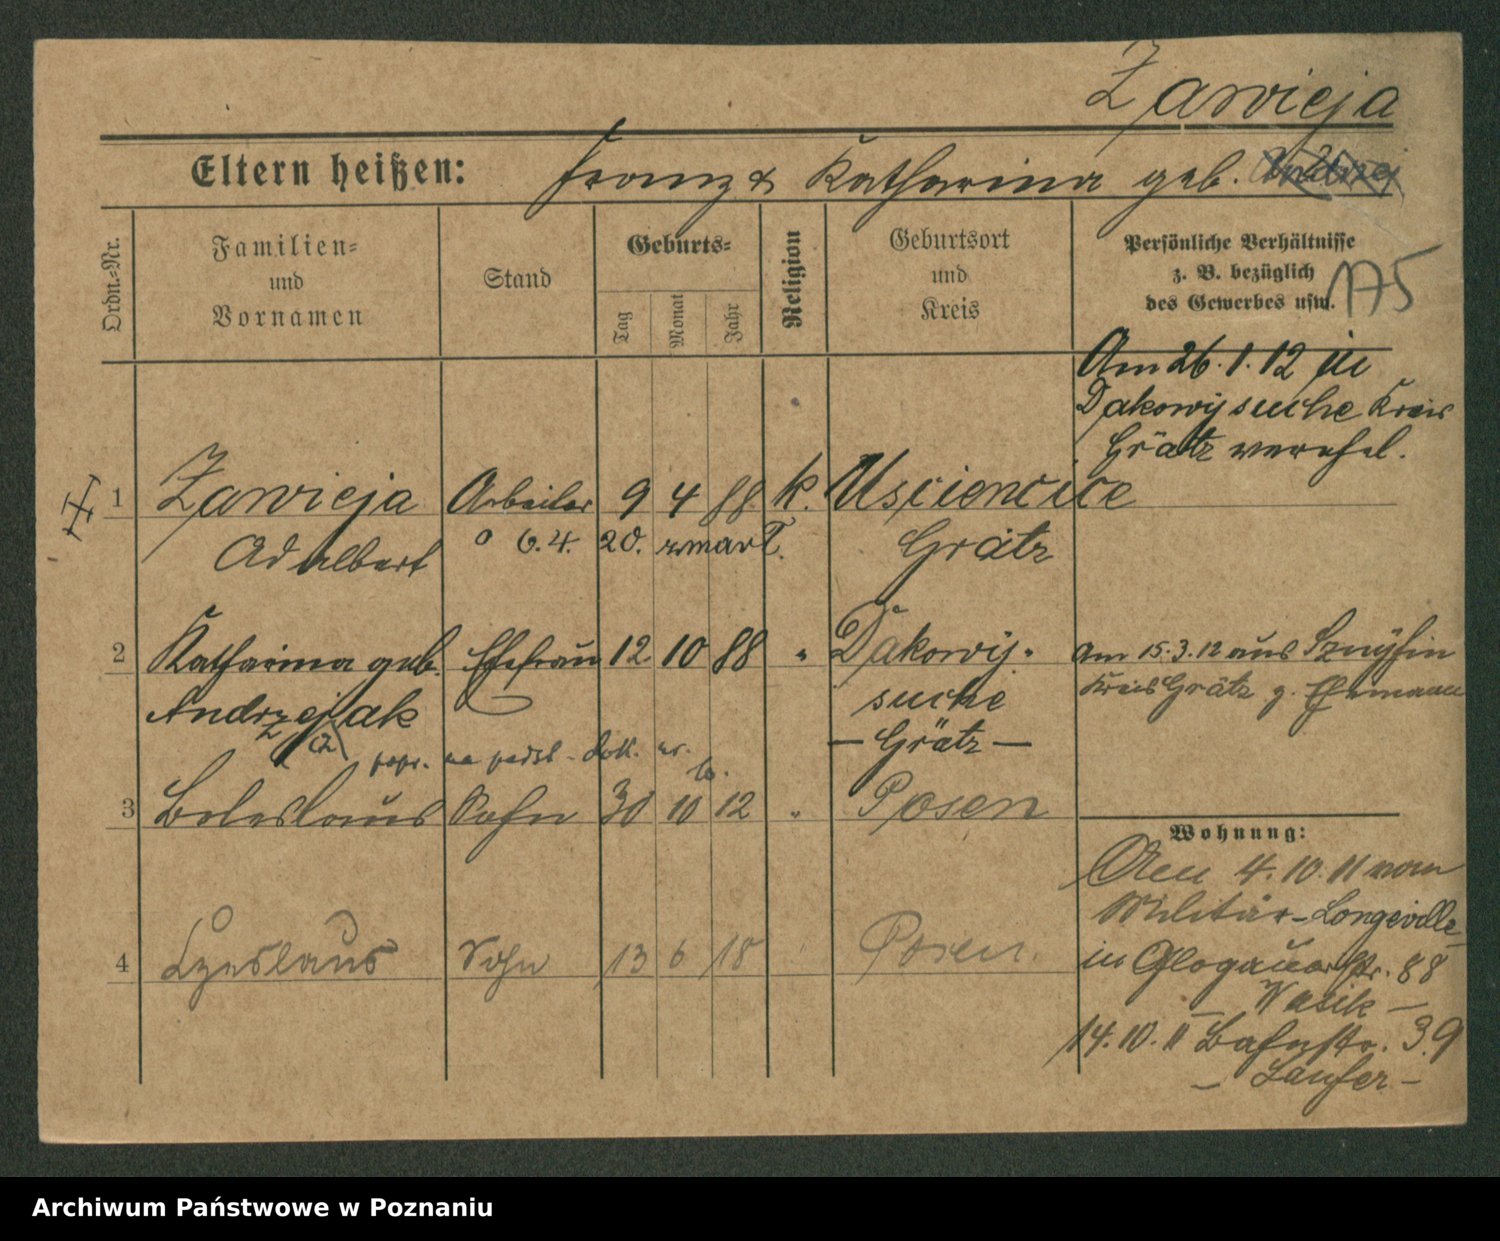 Zawieja
Eltern heißen: Franz & Katharina geb.
Ordn.-Nr.
Familien-
und
Vornamen
Stand
Geburts-
Tag
Monat
Jahr
Religion
Geburtsort
und
Kreis
Persönliche Verhältnisse
z. B. bezüglich
des Gewerbes usw.
175
Am 26.1.12 in
Dakowy suche Kreis
Grätz verehel.
1 Zawieja Arbeiter 9 4 88 k. Usciencice
Adalbert 6.4. 20. zmarł. Grätz
2 Katharina geb. Ehefrau 12 10 88 " Dakowy-
Andrzejak suche
— Grätz —
am 15.3.12 aus
Kreis Grätz z. Ehemann
popr. na podst. dok.
3 Boleslaus Sohn 30 10 12 " Posen
Wohnung:
4 Czeslaus Sohn 13 6 18 Posen.
4.10.11 vom
Militär-Longeville
in Glogauerstr. 88
— Wasik —
14.10.11 Bahnstr. 39
— Laufer —
Archiwum Państwowe w Poznaniu